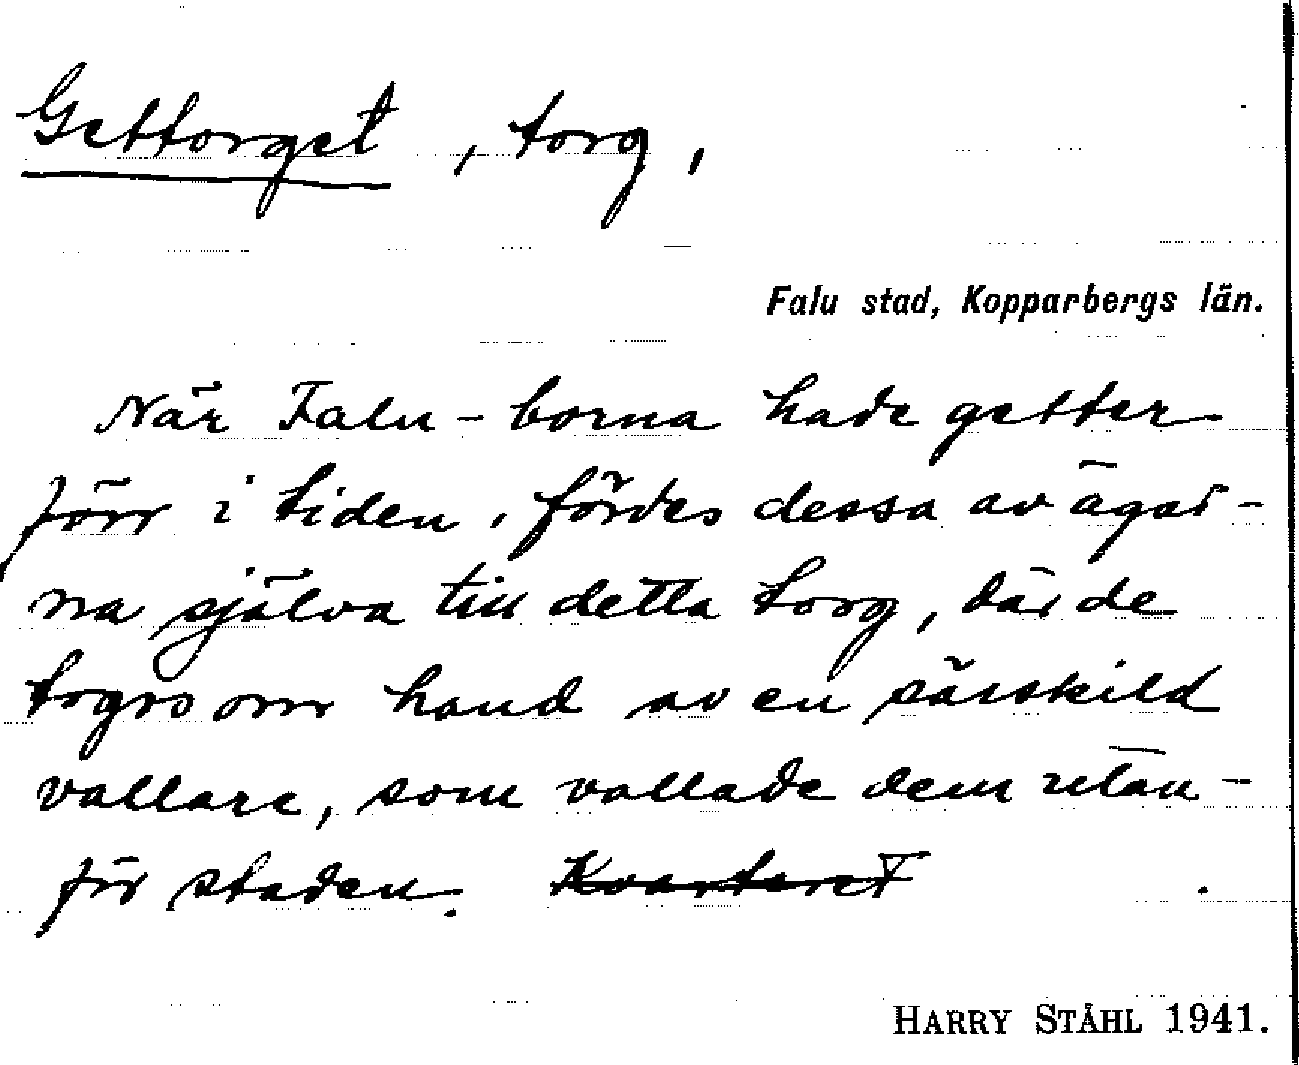 Gettorget, torg,
Falu stad, Kopparbergs län.
När Falu-borna hade getter
förr i tiden, fördes dessa av ägar-
na själva till detta torg, där de
togos om hand av en särskild
vallare, som vallade dem utan-
för staden. Kvarteret
HARRY STÅHL 1941.